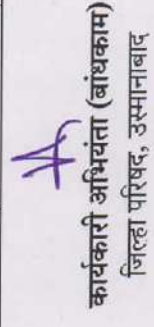 कार्यकारी अभियंता (बांधकाम)
जिल्हा परिषद, उस्मानाबाद